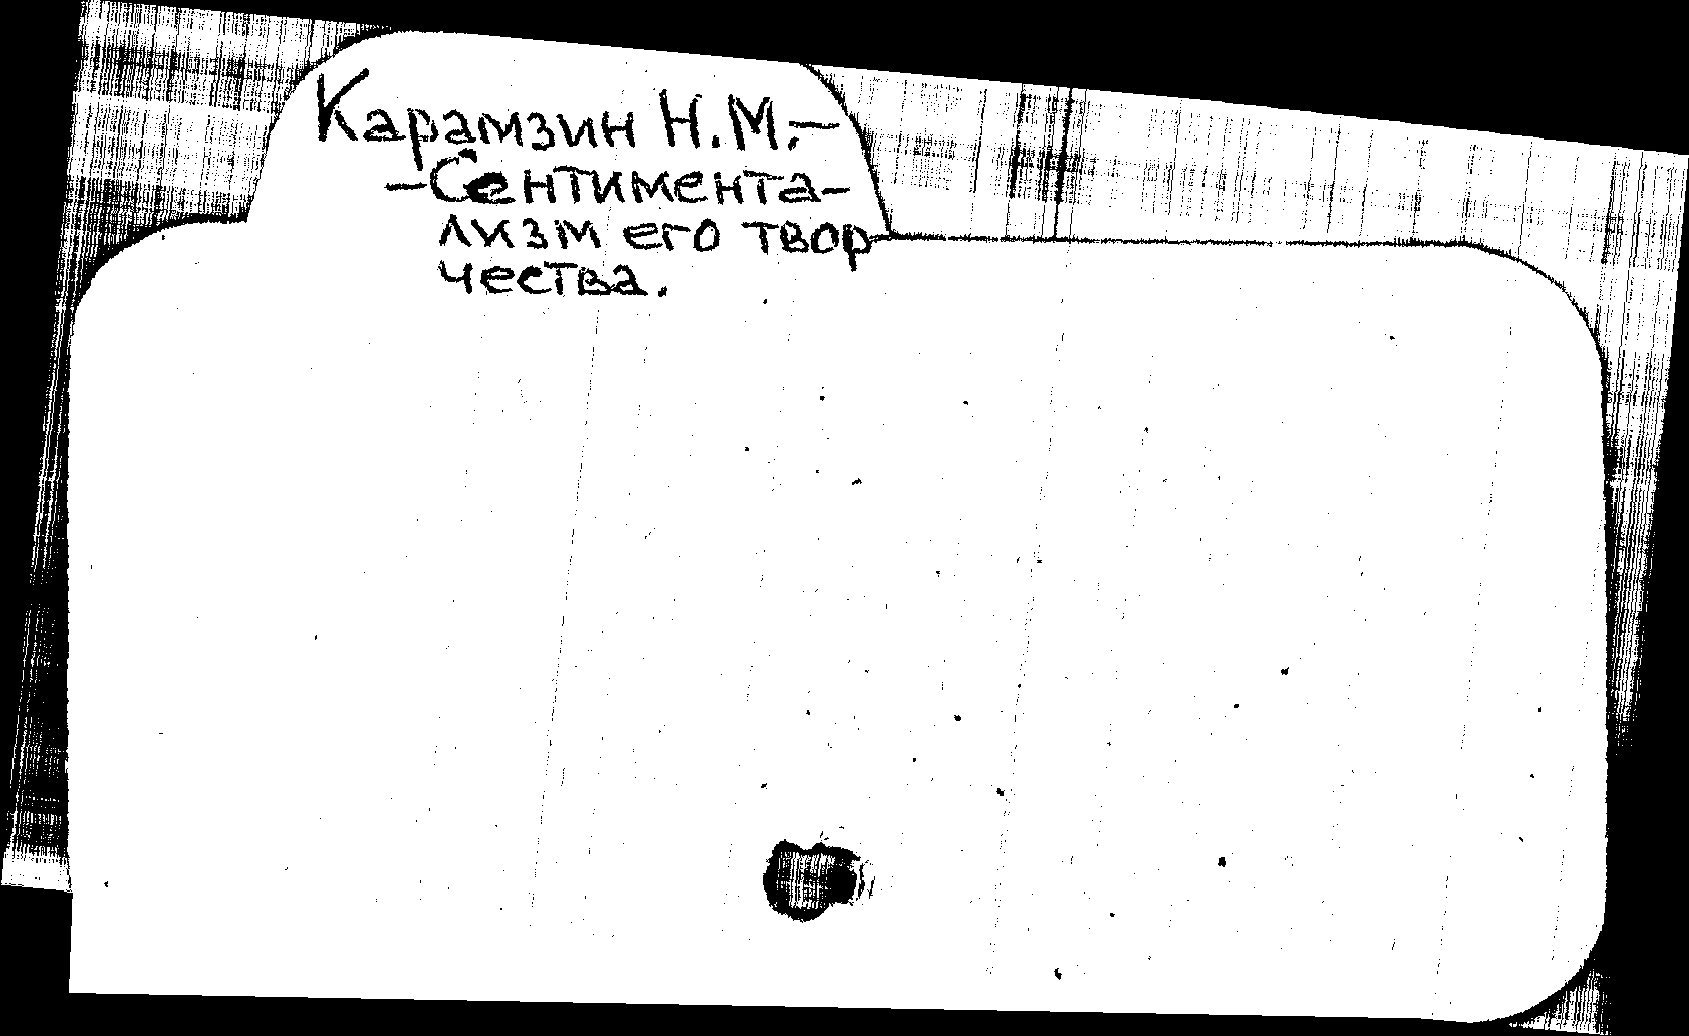 Карамзин Н.М.–
–Сентимента–
лизм его твор
чества.